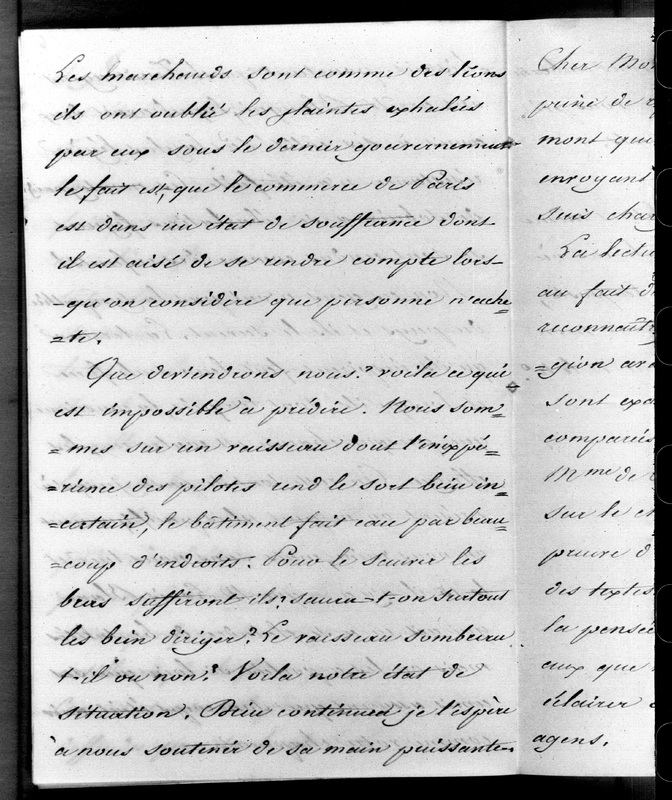 Les marchands sont comme des lions
ils ont oublié les plaintes exhalées
par eux sous le dernier gouvernement
le fait est, que le commerce de Paris
est dans un état de souffrance dont
il est aisé de se rendre compte lors-
-qu'on considère que personne n'ache=
=te.
Que deviendrons nous? voila ce qui
est impossible à prédire. Nous som=
=mes sur un vaisseau dont l'inexpé=
=rience des pilotes rend le sort bien in=
=certain, le bâtiment fait eau par beau=
=coup d'endroits. Pour le sauver les
bras suffiront ils? saura-t-on surtout
les bien diriger? Le vaisseau sombrera
t-il ou non? Voila notre état de
situation. Dieu continuera je l'espère
à nous soutenir de sa main puissante.
Cher Mon
peine de
mont que
envoyant
suis char
La lectu
au fait d
reconnaîtr
=gion ar
sont exa
comparés
Mme de
sur le c
preuve d
des textes
la pensée
aux que
éclairer
agens.